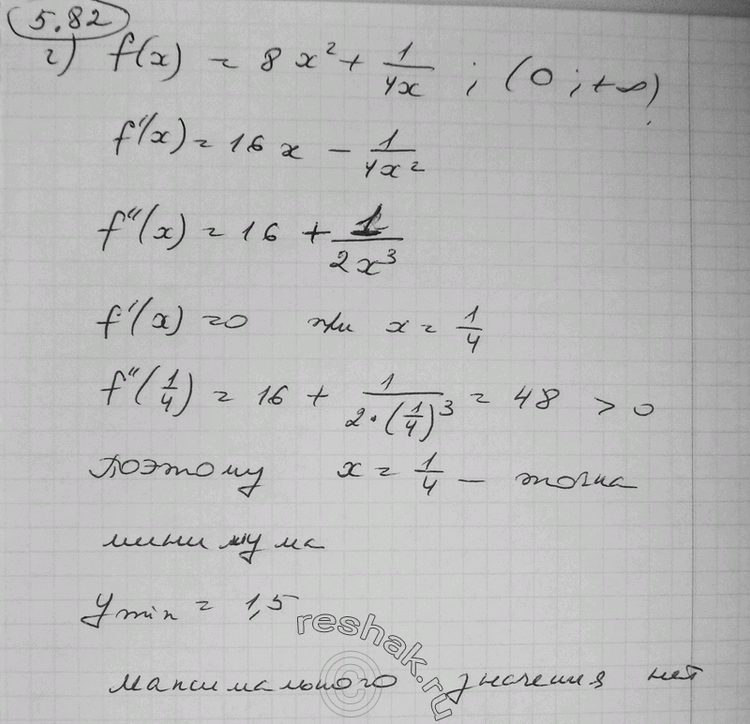 5.82
г) f(x) = 8x² + 1/(4x) ; (0 ; +∞)
f'(x) = 16x − 1/(4x²)
f''(x) = 16 + 1/(2x³)
f'(x) = 0 при x = 1/4
f''(1/4) = 16 + 1/(2·(1/4)³) = 48 > 0
Поэтому x = 1/4 — точка
минимума
y min = 1,5
reshak.ru
©
максимального значения нет